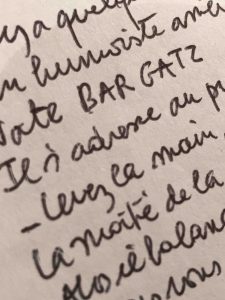 y a quelqu
humoriste amé
BARGATZ
Il s'adresse au p
- levez la main,
la moitié de la
Alors il balan
vous